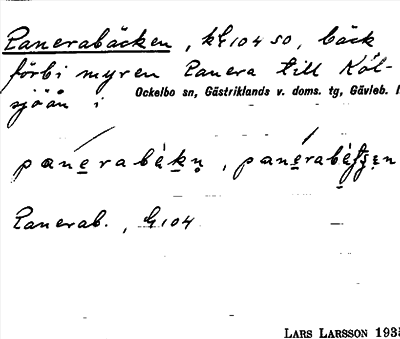 Panerabäcken, kG104 SO, bäck
förbi myren Panera till Köl-
sjöån i Ockelbo sn, Gästriklands v. doms. tg, Gävleb. l
panerabäkn̥,
Panerab., G104
LARS LARSSON 1935